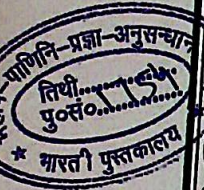 पाणिनि-प्रज्ञा-अनुसन्धान
तिथी..........
पु०सं०..........
* भारती पुस्तकालय